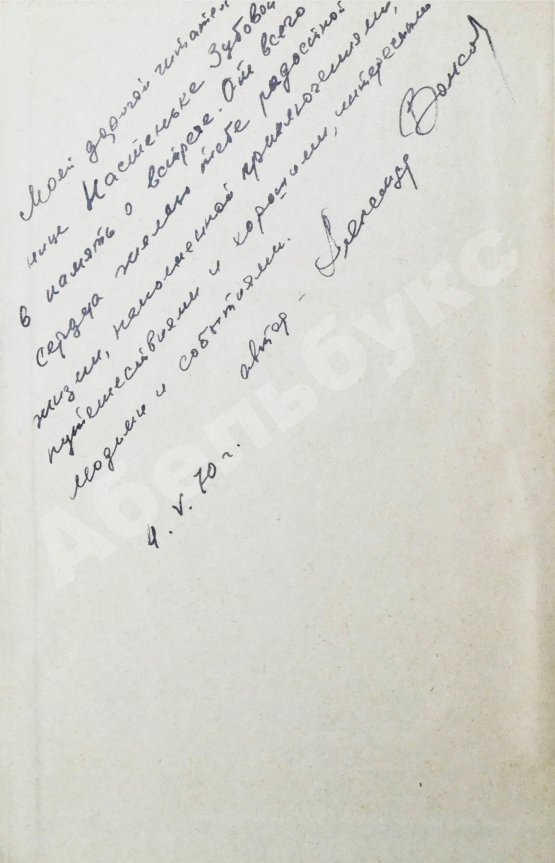 Моей дорогой читатель
нице Настеньке Зубовой
в память о встрече. От всего
сердца желаю тебе радостной
жизни, наполненной приключениями,
путешествиями и хорошими, интересными
людьми и событиями.
автор – Александр Волков
4. V. 70 г.
Абельбукс